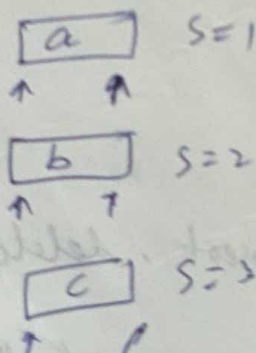 a S=1
b S=2
c S=3